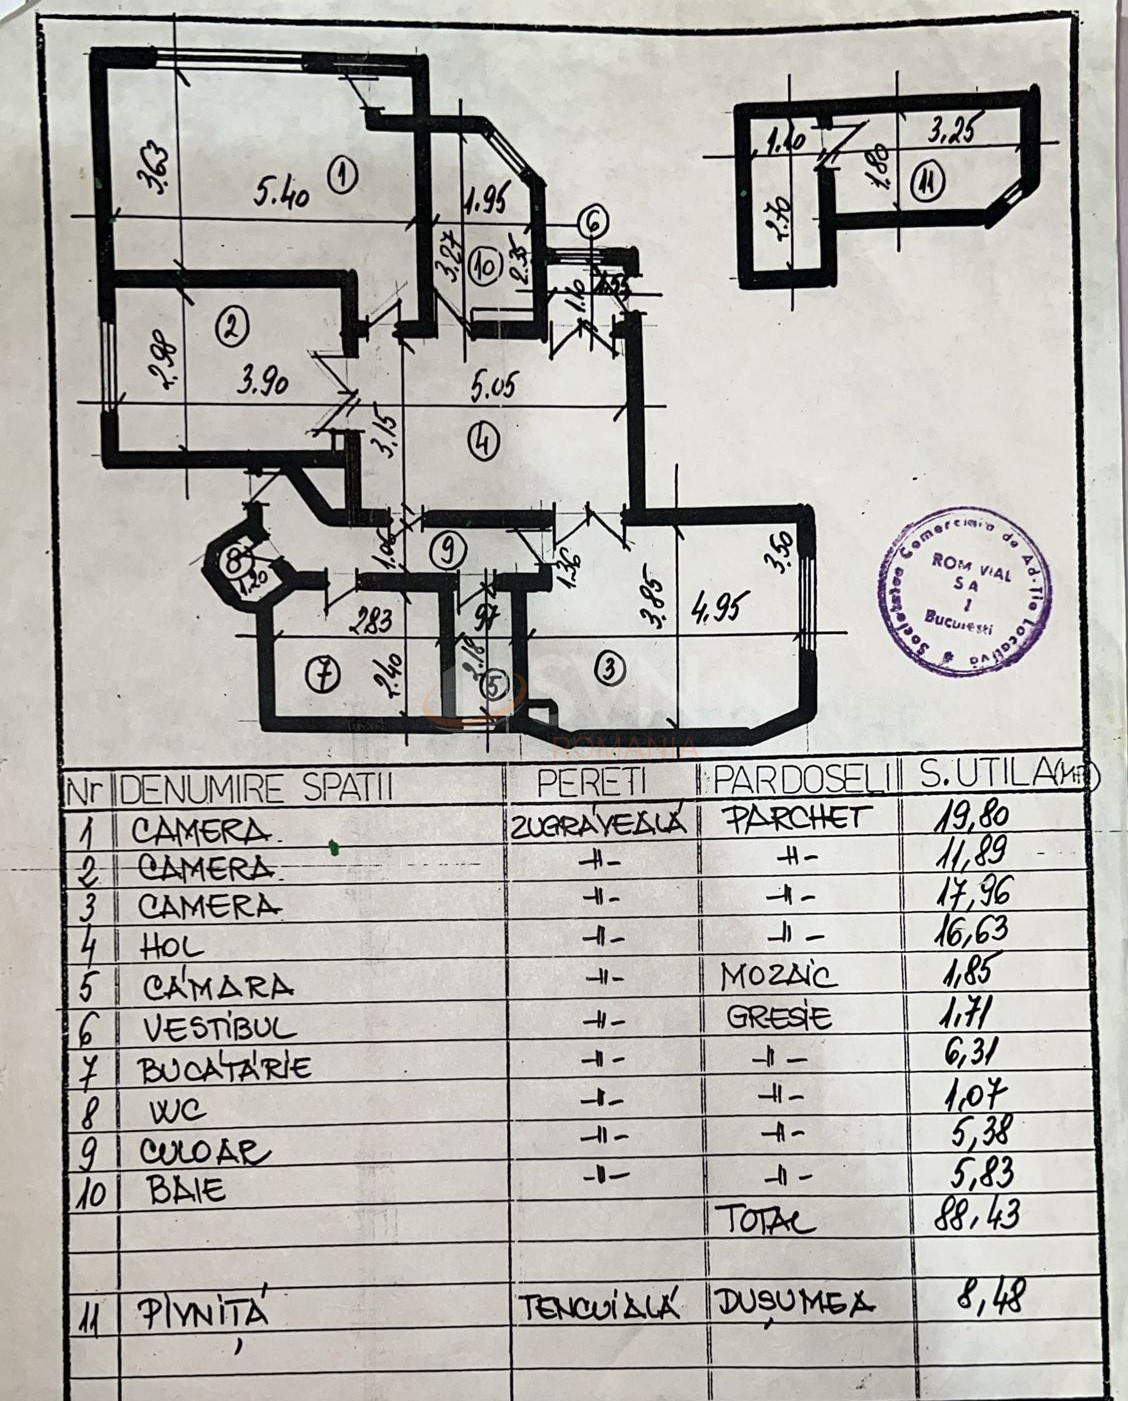 3.63
5.40
1
1.95
3.27
10
2.35
6
1.10
1.55
1.10
2.70
1.80
3.25
11
2
2.98
3.90
5.05
3.15
4
8
1.20
1.06
9
1.36
3.50
3.85
4.95
3
283
7
2.40
97
2.18
5
Societatea Comerciala de Ad-tia Locativa
ROM VIAL
SA
1
Bucuresti
SVN
ROMANIA
Nr DENUMIRE SPATII PERETI PARDOSELI S.UTILA(MP)
1 CAMERA ZUGRĂVEALĂ PARCHET 19,80
2 CAMERA -||- -||- 11,89
3 CAMERA -||- -||- 17,96
4 HOL -||- -||- 16,63
5 CĂMARA -||- MOZAIC 1,85
6 VESTIBUL -||- GRESIE 1,71
7 BUCĂTĂRIE -||- -||- 6,31
8 WC -||- -||- 1,07
9 CULOAR -||- -||- 5,38
10 BAIE -||- -||- 5,83
TOTAL 88,43
11 PIVNIȚĂ TENCUIALĂ DUȘUMEA 8,48